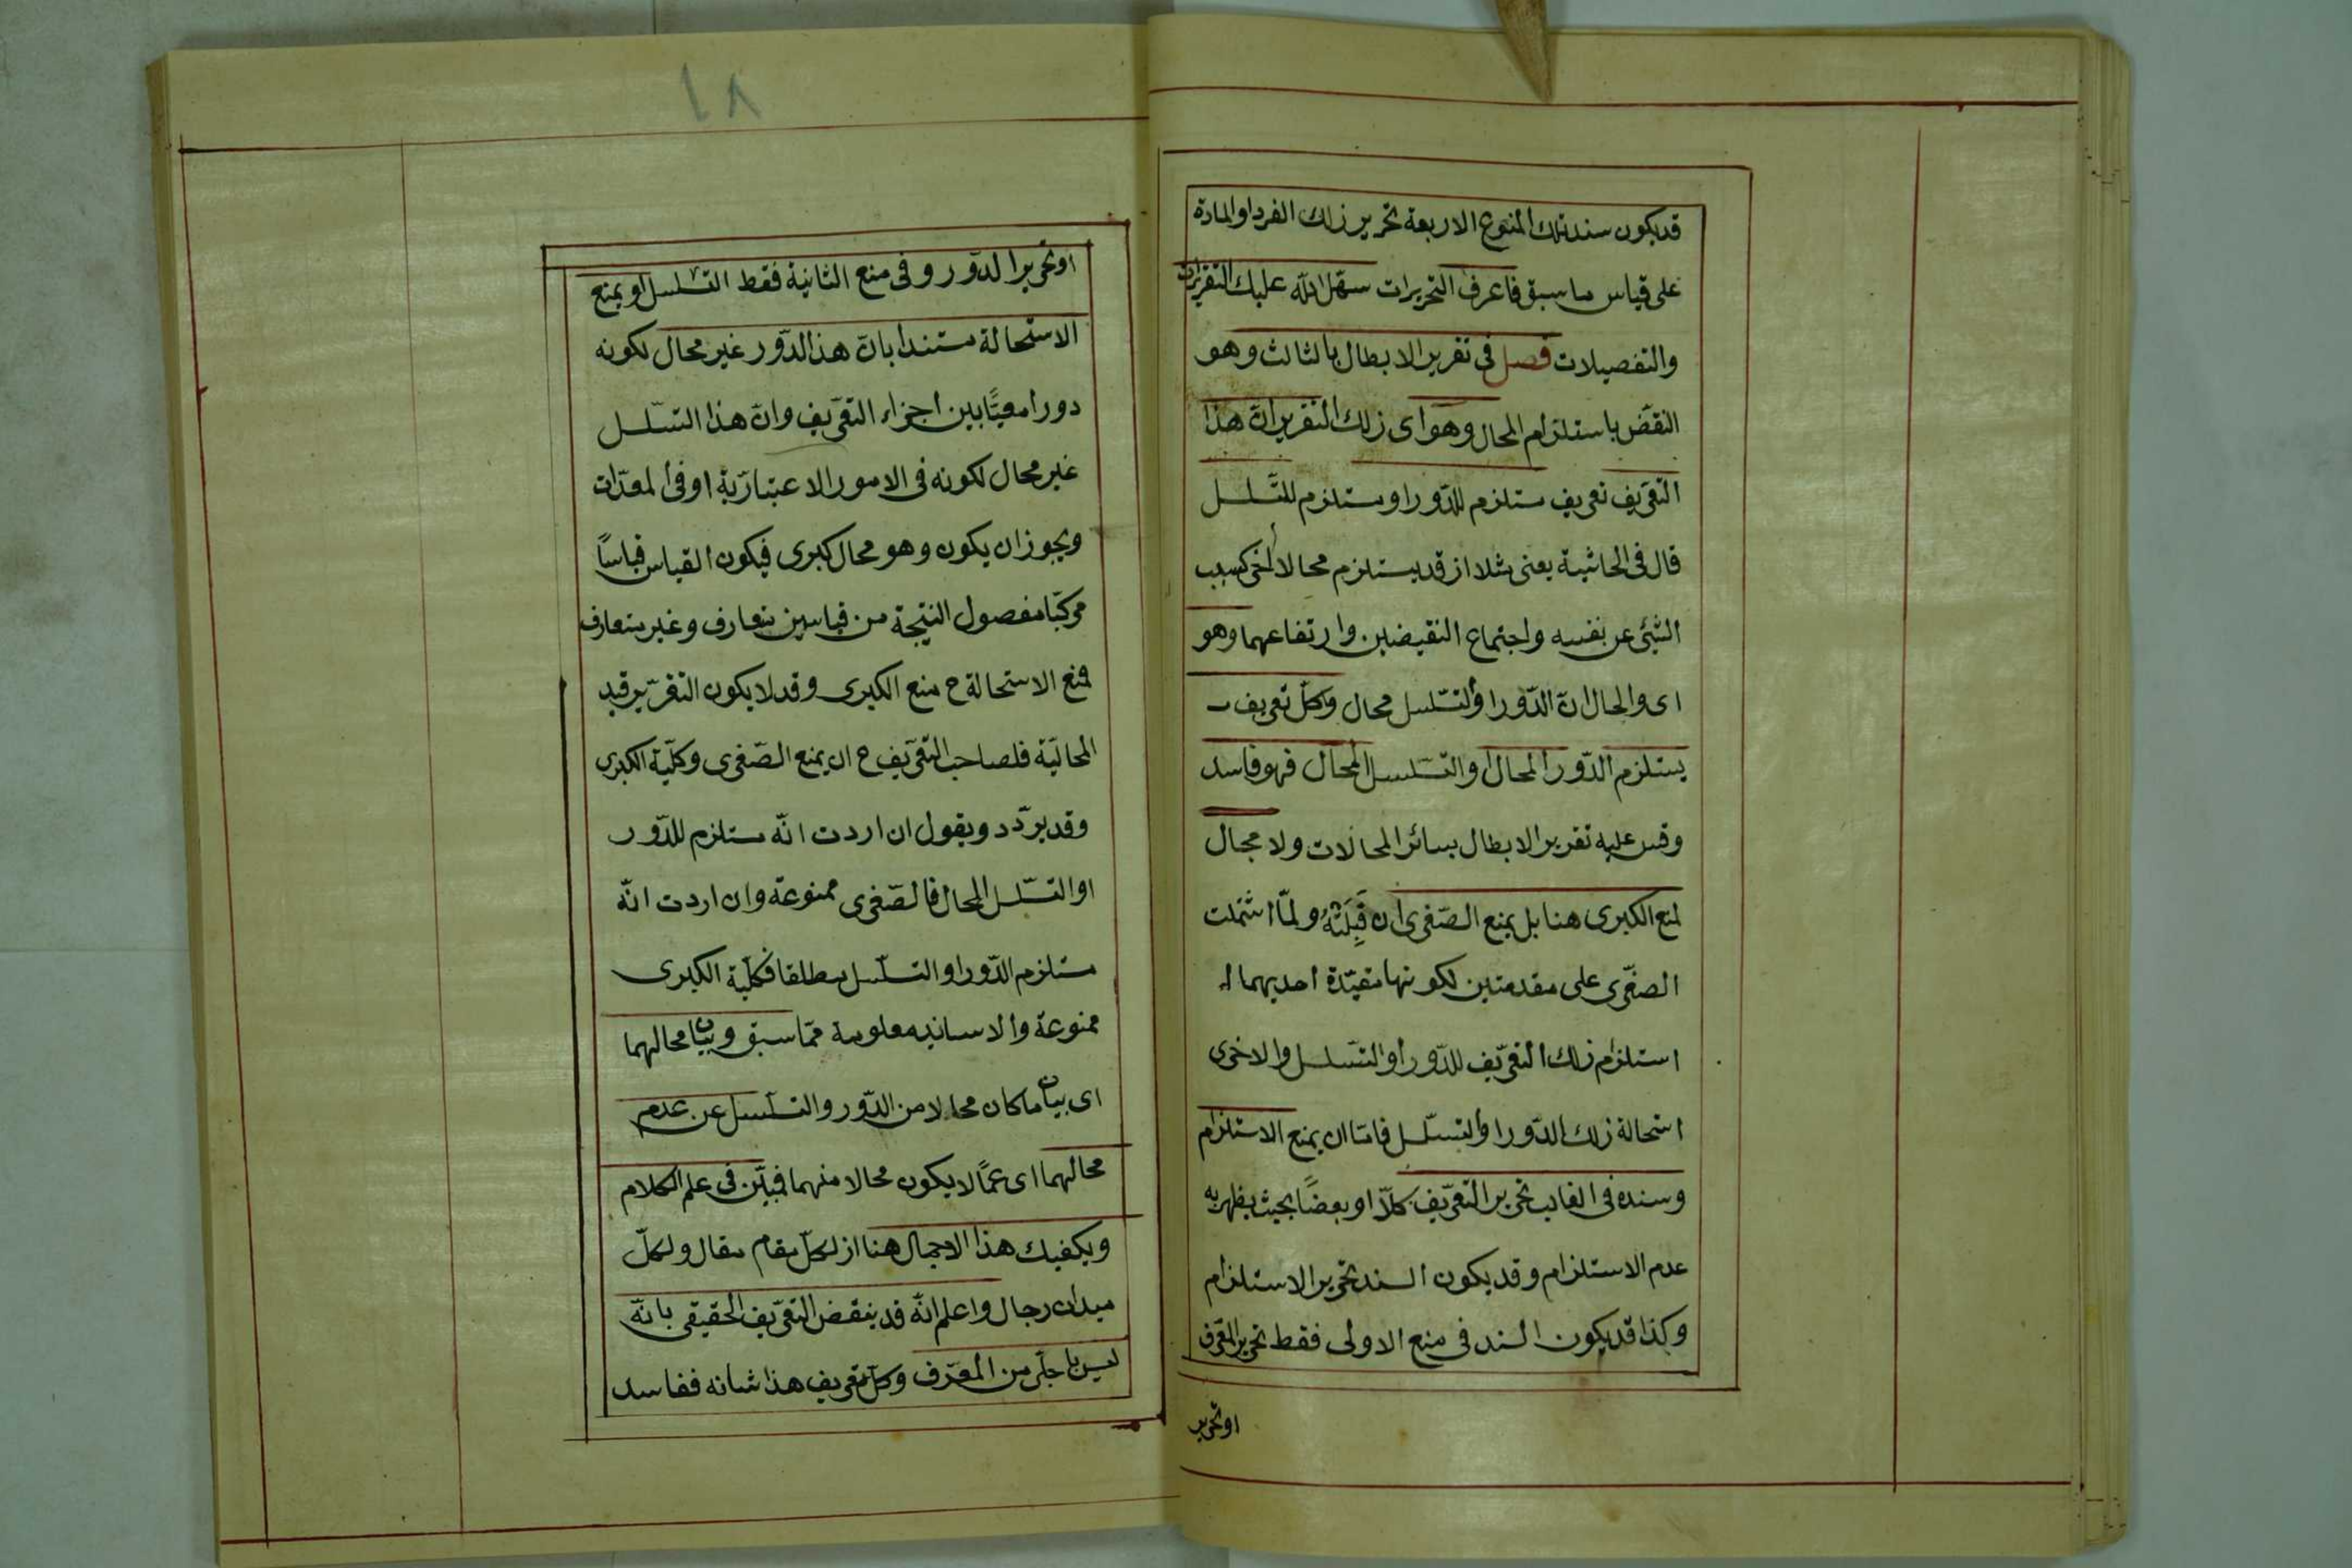 قد يكون سند تلك المنوع الاربعة تحرير ذلك الفرد او المادة
على قياس ما سبق فاعرف التحريرات سهّل الله عليك التقريرات
والتفصيلات فصل فى تقرير الابطال بالثالث وهو
النقض باستلزام المحال وهو اى ذلك التقرير انّ هذا
التعريف تعريف مستلزم للدّور او مستلزم للتّسلسل
قال فى الحاشية يعنى مثلا اذ قد يستلزم محالا اخر كسلب
الشئ عن نفسه واجتماع النقيضين وارتفاعهما وهو
اى والحال انّ الدّور او التّسلسل محال وكلّ تعريف
يستلزم الدّور المحال او التّسلسل المحال فهو فاسد
وقس عليه تقرير الابطال بسائر المحالات ولا مجال
لمنع الكبرى هنا بل يمنع الصّغرى ان قَبِلَتْهُ ولمّا اشتملت
الصغّرى على مقدمتين لكونها مقيّدة احديهما
استلزام ذلك التعرّيف للدّور او التّسلسل والاخرى
استحالة ذلك الدّور او التسّلسل فامّا ان يمنع الاستلزام
وسنده فى الغالب تحرير التعرّيف كلّا او بعضًا بحيث يظهر به
عدم الاستلزام وقد يكون السند تحرير الاستلزام
وكذا قد يكون السند فى منع الاولى فقط تحرير المعرّف
او تحرير
١٨
او تحرير الدّور وفى منع الثانية فقط التّسلسل او يمنع
الاستحالة مستندا بانّ هذا الدّور غير محال لكونه
دورا معيًّا بين اجزاء التعّريف وانّ هذا التسّلسل
غير محال لكونه فى الامور الاعتباريّة او فى المعدّات
ويجوز ان يكون وهو محال كبرى فيكون القياس قياسًا
مركبّا مفصول النتيجة من قياسين متعارف وغير متعارف
فمنع الاستحالة ح منع الكبرى وقد لا يكون التقرّير قيد
المحاليّة فلصاحب التعّريف ح ان يمنع الصّغرى وكلّية الكبرى
وقد يردّد ويقول ان اردت انّه مستلزم للدّور
او التسّلسل المحال فالصّغرى ممنوعة وان اردت انّه
مستلزم الدّور او التسلّسل مطلقا فكليّة الكبرى
ممنوعة والاسانيد معلومة ممّا سبق وبيان محالهما
اى بيان ما كان محالا من الدّور والتسلّسل عن عدم
محالهما اى عمّا لا يكون محالا منهما فمبيّن فى علم الكلام
ويكفيك هذا الاجمال هنا اذ لكلّ مقام مقال ولكلّ
ميدان رجال واعلم انّه قد ينقض التعرّيف الحقيقى بانّه
ليس باجلى من المعرّف وكلّ تعريف هذا شانه ففاسد